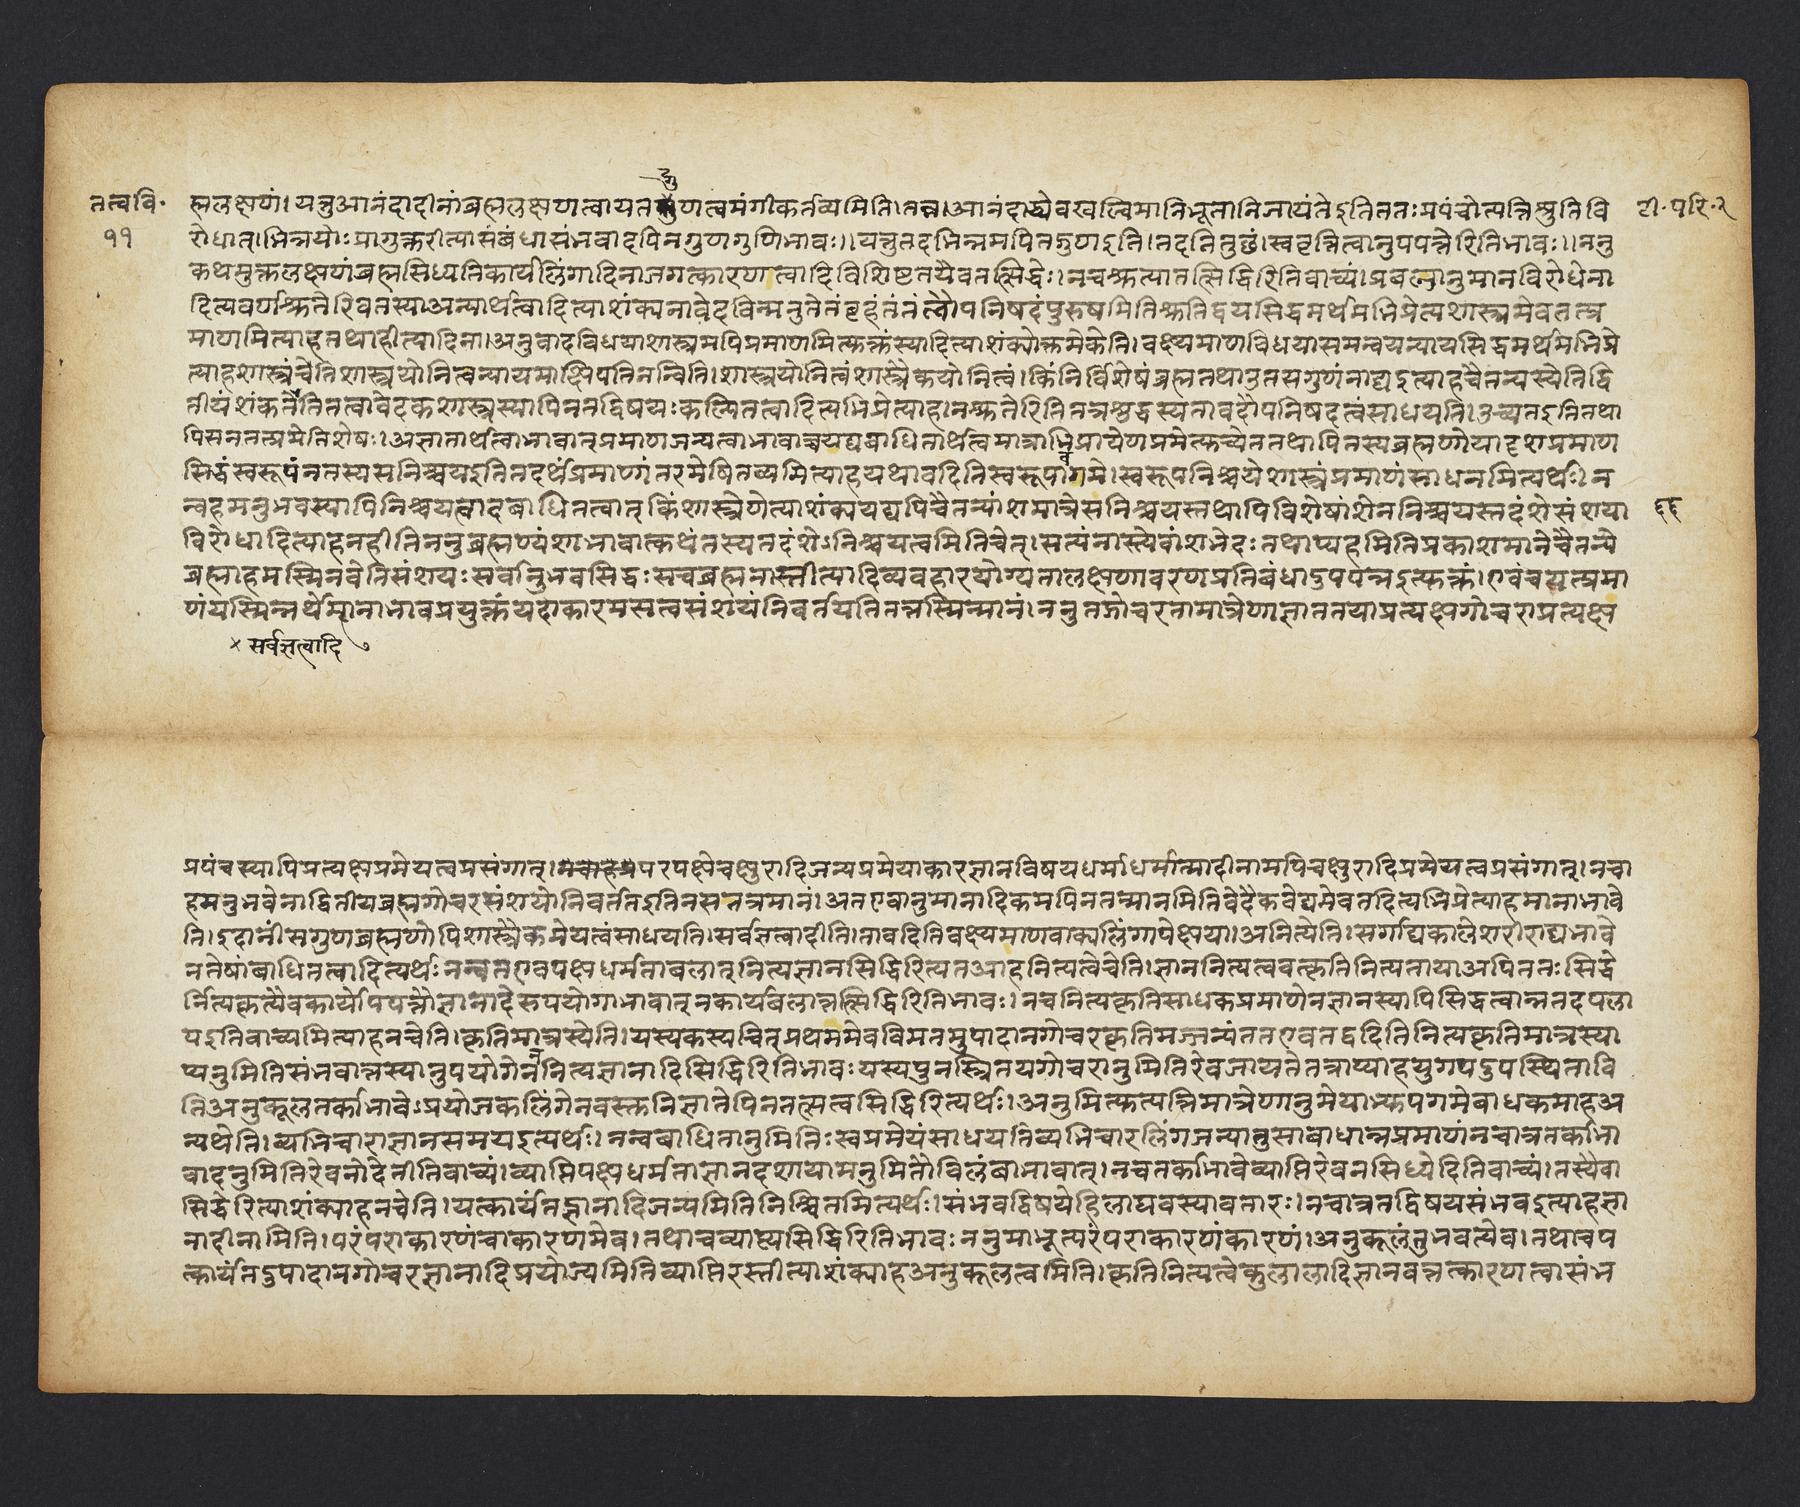 तत्ववि॰
११
टी॰परि॰२
ह्मलक्षणं। यत्तुआनंदादीनांब्रह्मलक्षणत्वायतद्गुणत्वमंगीकर्तव्यमिति।तन्न।आनंदाद्ध्येवखल्विमानिभूतानिजायंतेइतिततःप्रपंचोत्पत्तिस्तुतिवि
रोधात्।भिन्नयोःप्रागुक्तरीत्यासंबंधासंभवादपिनगुणगुणिभावः।।यत्तुतदभिन्नमपितद्गुणइति।तदतितुछं।स्ववृत्तित्वानुपपत्तेरितिभावः।।ननु
कथमुक्तलक्षणंब्रह्मसिध्यतिकार्यलिंगादिनाजगत्कारणत्वादिविशिष्टतयैवतत्सिद्धेः।नचश्रुत्यातत्सिद्धिरितिवाच्यं।प्रबलानुमानविरोधेना
दित्यवर्णश्रुतेरिवतस्याअन्यार्थत्वादित्याशंक्यनावेदविन्मनुतेतंबृहंतंतंत्वौपनिषदंपुरुषमितिश्रुतिद्वयसिद्धमर्थमभिप्रेत्यशास्त्रमेवतत्प्र
माणमित्याहतथाहीत्यादिना।अनुवादविधयाशास्त्रमपिप्रमाणमित्युक्तंस्यादित्याशंक्योक्तमेकेति।वक्ष्यमाणविधयासमन्वयन्यायसिद्धमर्थमभिप्रे
त्याहशास्त्रंचेतिशास्त्रयोनित्वन्यायमाक्षिपतिनन्विति।शास्त्रयोनित्वंशास्त्रैकयोनित्वं।किंनिर्विशेषंब्रह्मतथाउतसगुणंनाद्यइत्याहचैतन्यस्येतिद्वि
तीयंशंकतेतितत्वावेदकशास्त्रस्यापिनतद्विषयःकल्पितत्वादित्यभिप्रेत्याह।नश्रुतेरितितत्रशुद्धस्यतावदौपनिषदत्वंसाधयति।उच्यतइतितथा
पिसनतत्प्रमेतिशेषः।अज्ञातार्थत्वाभावात्प्रमाणजन्यत्वाभावाच्चयद्यबाधितार्थत्वमात्राभिप्रायेणप्रमेत्युच्येततथापितस्यब्रह्मणोयादृशप्रमाण
सिद्धंस्वरूपंनतस्यसनिश्चयइतितदर्थंप्रमाणांतरमेषितव्यमित्याहयथावदितिस्वरूपावगमे।स्वरूपनिश्चयेशास्त्रंप्रमाणंसाधनमित्यर्थः।न
न्वहमनुभवस्यापिनिश्चयत्वादबाधितत्वात्किंशास्त्रेणेत्याशंक्ययद्यपिचैतन्यांशमात्रेसनिश्चयस्तथापिविशेषांशेननिश्चयस्तदंशेसंशया
६६
विरोधादित्याहनहीतिननुब्रह्मण्यंशाभावात्कथंतस्यतदंशेऽनिश्चयत्वमितिचेत्।सत्यंनास्त्येवांशभेदःतथाप्यहमितिप्रकाशमानेचैतन्ये
ब्रह्माहमस्मिनवेतिसंशयःसर्वानुभवसिद्धःसचब्रह्मनास्तीत्यादिव्यवहारयोग्यतालक्षणावरणप्रतिबंधादुपपन्नइत्युक्तं।एवंचयत्प्रमा
णंयस्मिन्नर्थेमानाभावप्रयुक्तंयदाकारमसत्वसंशयंनिवर्तयतितत्तस्मिन्मानं।ननुतद्गोचरतामात्रेणाज्ञाततयाप्रत्यक्षगोचराप्रत्यक्ष
× सर्वज्ञत्वादि
प्रपंचस्यापिप्रत्यक्षप्रमेयत्वप्रसंगात्।परपक्षेचक्षुरादिजन्यप्रमेयाकारज्ञानविषयधर्माधर्मात्मादीनामपिचक्षुरादिप्रमेयत्वप्रसंगात्।नचा
हमनुभवेनाद्वितीयब्रह्मगोचरसंशयोनिवर्ततइतिनसतत्रमानं।अतएवानुमानादिकमपिनतन्मानमितिवेदैकवेद्यमेवतदित्यभिप्रेत्याहमानाभावे
ति।इदानींसगुणब्रह्मणोपिशास्त्रैकमेयत्वंसाधयति।सर्वज्ञत्वादीति।तावदितिवक्ष्यमाणवाक्यलिंगापेक्षया।अनित्येति।सर्गाद्यकालेशरीराद्यभावे
नतेषांबाधितत्वादित्यर्थःनन्वतएवपक्षधर्मताबलात्नित्यज्ञानसिद्धिरित्यतआहनित्यत्वेचेति।ज्ञाननित्यत्ववत्कृतिनित्यतायाअपिततःसिद्धे
र्नित्यकृत्यैवकार्योपपत्तौज्ञानादेरुपयोगाभावात्नकार्यबलात्तत्सिद्धिरितिभावः।नचनित्यकृतिसाधकप्रमाणेनज्ञानस्यापिसिद्धत्वान्नतदपला
पइतिवाच्यमित्याहनचेति।कृतिमात्रस्येति।यस्यकस्यचित्प्रथममेवविमतमुपादानगोचरकृतिमज्जन्यंततएवतद्वदितिनित्यकृतिमात्रस्या
प्यनुमितिसंभवात्तस्यानुपयोगेननित्यज्ञानादिसिद्धिरितिभावःयस्यपुनस्त्रितयगोचरानुमितिरेवजायतेतत्राप्याहयुगपदुपस्थितावि
तिअनुकूलतर्काभावेऽप्रयोजकलिंगेनवस्तुनिज्ञातेपिनतत्सत्वसिद्धिरित्यर्थः।अनुमित्युत्पत्तिमात्रेणानुमेयाभ्युपगमेबाधकमाहअ
न्यथेति।व्यभिचाराज्ञानसमयइत्यर्थः।नन्वबाधितानुमितिःस्वप्रमेयंसाधयतिव्यभिचारलिंगजन्यातुसाबाधान्नप्रमाणंनचात्रतर्काभा
वादनुमितिरेवनोदेतीतिवाच्यं।व्याप्तिपक्षधर्मताज्ञानदशायामनुमितौविलंबाभावात्।नचतर्काभावेव्याप्तिरेवनसिध्येदितिवाच्यं।तस्यैवा
सिद्धेरित्याशंक्याहनचेति।यत्कार्यंतज्ज्ञानादिजन्यमितिनिश्चितमित्यर्थः।संभवद्विषयेहिलाघवस्यावतारः।नचात्रतद्विषयसंभवइत्याहज्ञा
नादीनामिति।परंपराकारणंचाकारणमेव।तथाचव्याप्त्यसिद्धिरितिभावःननुमाभूत्परंपराकारणंकारणं।अनुकूलंतुभवत्येव।तथाचय
त्कार्यंतदुपादानगोचरज्ञानादिप्रयोज्यमितिव्याप्तिरस्तीत्याशंक्याहअनुकूलत्वमिति।कृतिनित्यत्वेकुलालादिज्ञानवन्नत्कारणत्वासंभ